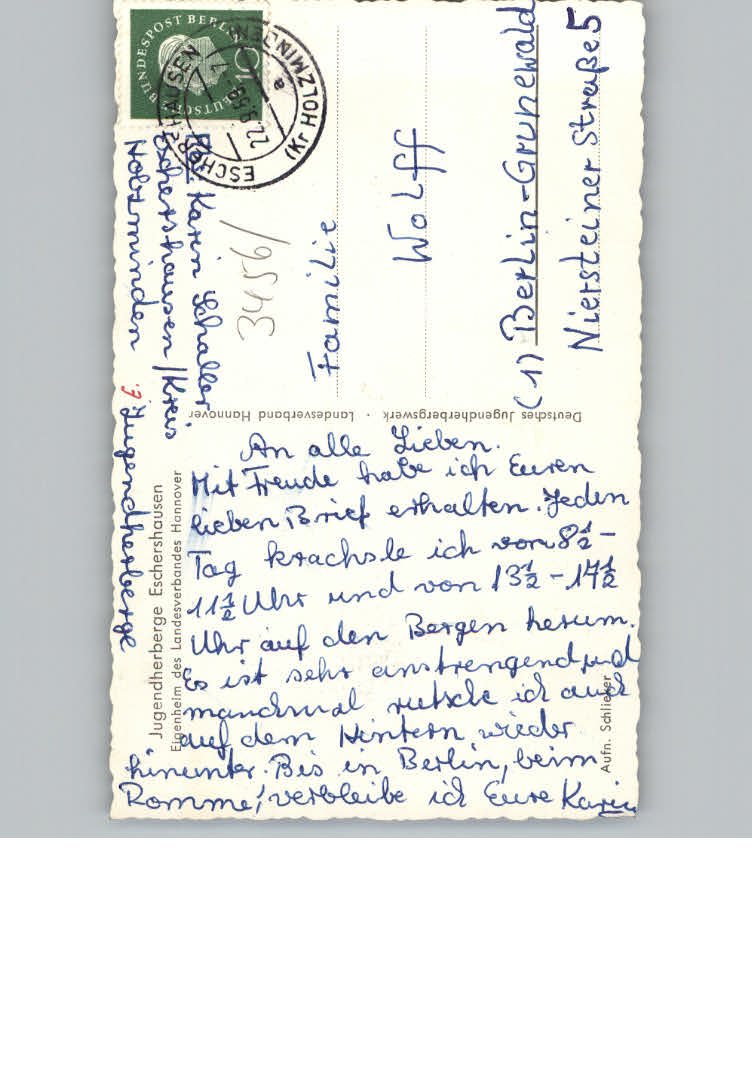 DEUTSCHE BUNDESPOST BERLIN
10
ESCHERSHAUSEN
(Kr HOLZMINDEN)
22.9.59-17
a
Karin Schaller
Eschershausen / Kreis
Holzminden Jugendherberge
3456/
Familie
Wolff
(1) Berlin-Grunewald
Niersteiner Straße 5
Deutsches Jugendherbergswerk · Landesverband Hannover
Jugendherberge Eschershausen
Eigenheim des Landesverbandes Hannover
An alle Lieben.
Mit Freude habe ich Euren
lieben Brief erhalten. Jeden
Tag krachsle ich von 8½ -
11½ Uhr und von 13½ - 17½
Uhr auf den Bergen herum.
Es ist sehr anstrengend und
manchmal rutsche ich auch
auf dem Hintern wieder
hinunter. Bis in Berlin, beim
Romme, verbleibe ich Eure Karin
Aufn. Schlieker